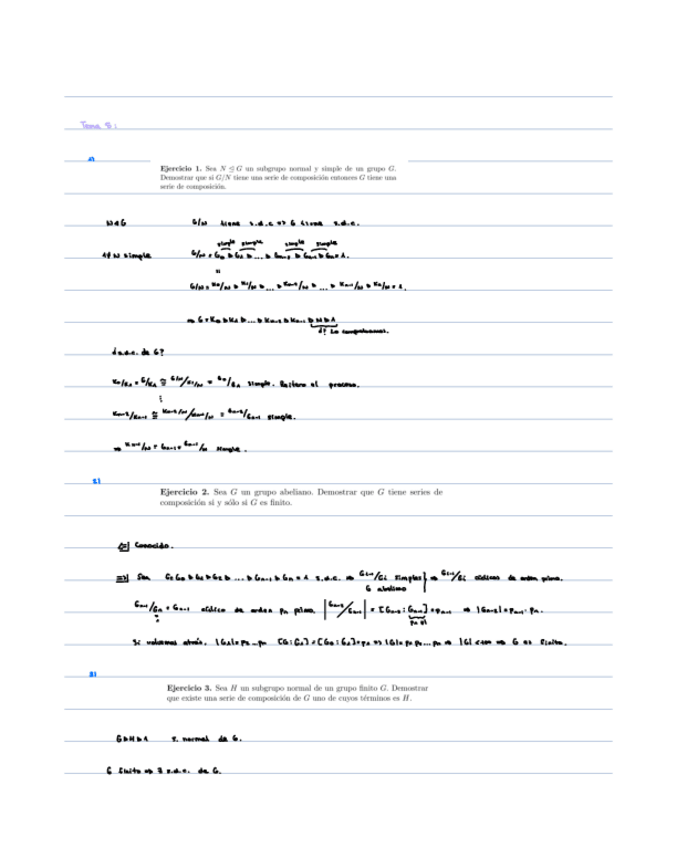 Tema 8:
1)
Ejercicio 1. Sea N ⊴ G un subgrupo normal y simple de un grupo G.
Demostrar que si G/N tiene una serie de composición entonces G tiene una
serie de composición.
N⊲G G/N tiene s.d.c ⇒ G tiene s.d.c.
simple simple simple simple
1≠N simple G/N = G₀ ⊳ G₁ ⊳ ... ⊳ Gₙ₋₂ ⊳ Gₙ₋₁ ⊳ Gₙ = 1.
G/N = K₀/N ⊳ K₁/N ⊳ ... ⊳ ... ⊳ Kₙ₋₁/N ⊳ Kₙ/N = 1.
⇒ G = K₀ ⊳ K₁ ⊳ ... ⊳ Kₙ₋₂ ⊳ Kₙ₋₁ ⊳ N ⊳ 1
¿? Lo comprobamos.
¿s.d.c. de G?
K₀/K₁ = G/K₁ ≅ G/N/K₁/N = G₀/G₁ simple. Reitero el proceso.
⋮
Kₙ₋₂/Kₙ₋₁ ≅ Kₙ₋₂/N/Kₙ₋₁/N = Gₙ₋₂/Gₙ₋₁ simple.
⇒ Kₙ₋₁/N = Gₙ₋₁ = Gₙ₋₁/N simple.
2)
Ejercicio 2. Sea G un grupo abeliano. Demostrar que G tiene series de
composición si y sólo si G es finito.
⇐| Conocido.
⇒| Sea G = G₀ ⊳ G₁ ⊳ G₂ ⊳ ... ⊳ Gₙ₋₁ ⊳ Gₙ = 1 s.d.c. ⇒ Gᵢ₋₁/Gᵢ simples} ⇒ Gᵢ₋₁/Gᵢ cíclicos de orden primo.
G abeliano
Gₙ₋₁/Gₙ = Gₙ₋₁ cíclico de orden pₙ primo. |Gₙ₋₂/Gₙ₋₁| = [Gₙ₋₂ : Gₙ₋₁] = pₙ₋₁ ⇒ |Gₙ₋₂| = pₙ₋₁ · pₙ.
Si volvemos atrás, |G₁| = p₂...pₙ [G:G₁] = [G₀:G₁] = p₁ ⇒ |G| = p₁p₂...pₙ ⇒ |G| < +∞ ⇒ G es finito.
3)
Ejercicio 3. Sea H un subgrupo normal de un grupo finito G. Demostrar
que existe una serie de composición de G uno de cuyos términos es H.
G ⊳ H ⊳ 1 s. normal de G.
G finito ⇒ ∃ s.d.c. de G.